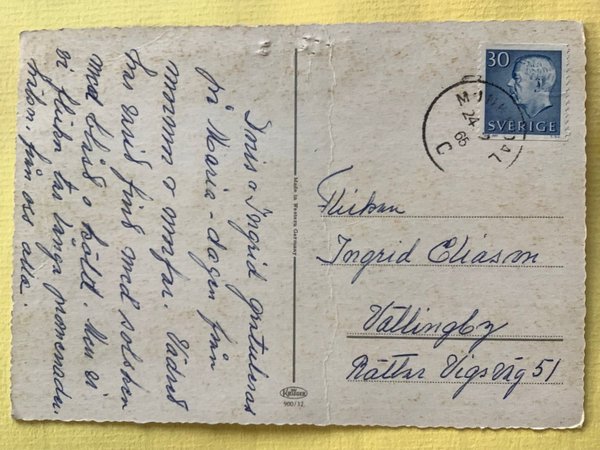 Doris o Ingrid gratuleras
på Maria-dagen från
mormor o morfar. Vädret
har varit fint med solsken
med blåst o kallt. Men vi
vi flickor tar långa promenader
från oss alla.
Made in Western Germany
Krüger
900/12
30
SVERIGE
24
66
C
Fröken
Ingrid Eliasson
Vällingby
Rättar Vigs väg 51